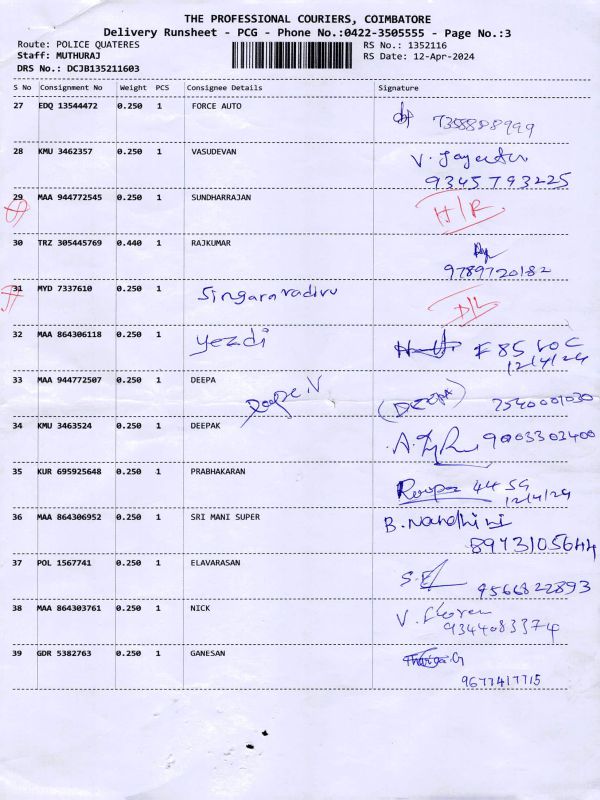 THE PROFESSIONAL COURIERS, COIMBATORE
Delivery Runsheet - PCG - Phone No.:0422-3505555 - Page No.:3
Route: POLICE QUATERES RS No.: 1352116
Staff: MUTHURAJ RS Date: 12-Apr-2024
DRS No.: DCJB135211603
S No Consignment No Weight PCS Consignee Details Signature
27 EDQ 13544472 0.250 1 FORCE AUTO
28 KMU 3462357 0.250 1 VASUDEVAN
9345793225
29 MAA 944772545 0.250 1 SUNDHARRAJAN
30 TRZ 305445769 0.440 1 RAJKUMAR
9789720182
31 MYD 7337610 0.250 1 Singaravadivu
D/L
32 MAA 864306118 0.250 1 Yezdi
12/4/24
33 MAA 944772507 0.250 1 DEEPA (Deepa) 7540001030
34 KMU 3463524 0.250 1 DEEPAK 9003303400
35 KUR 695925648 0.250 1 PRABHAKARAN Roopa 44 SG
12/4/24
36 MAA 864306952 0.250 1 SRI MANI SUPER B. Nandhini
8973105644
37 POL 1567741 0.250 1 ELAVARASAN
9566822893
38 MAA 864303761 0.250 1 NICK
9344083374
39 GDR 5382763 0.250 1 GANESAN
9677417715